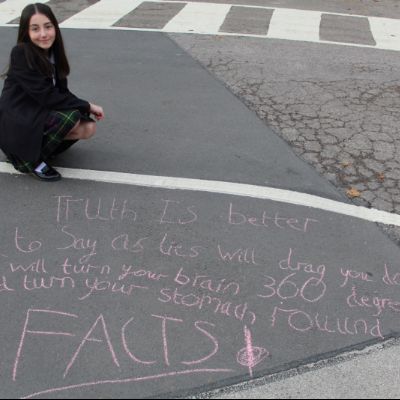 Truth Is better
to Say as lies will drag you do
will turn your brain 360 degree
d turn your stomach rouund
FACTS!